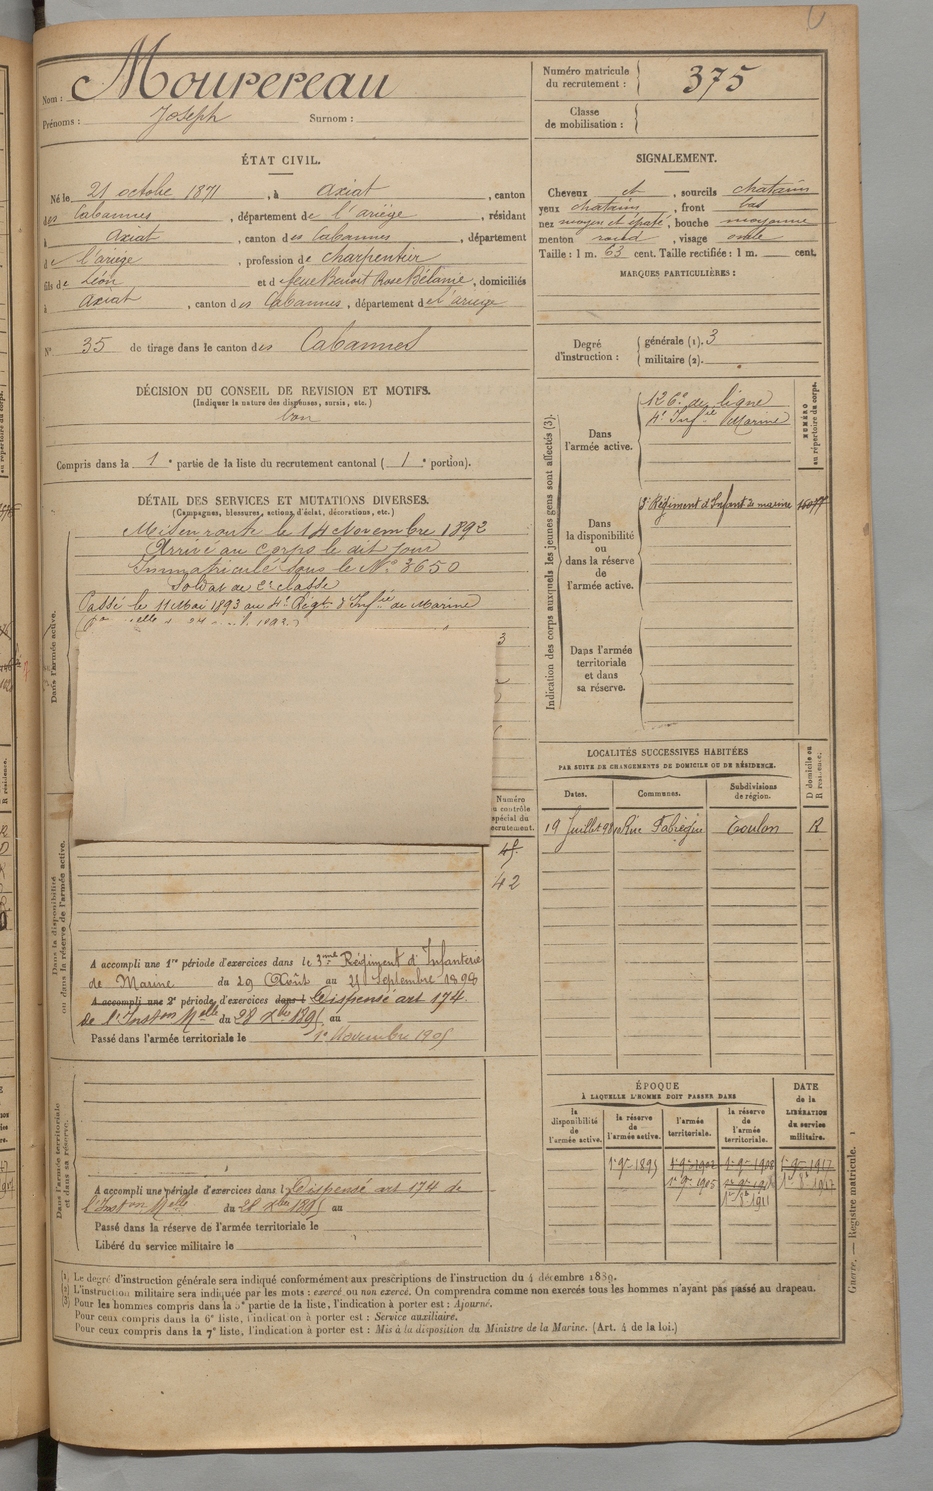 Nom : Mourereau
Prénoms : Joseph Surnom :
Numéro matricule du recrutement : 375
Classe de mobilisation :
ÉTAT CIVIL.
Né le 21 octobre 1871, à Axiat, canton
des Cabannes, département de l'ariège, résidant
à Axiat, canton des Cabannes, département
de l'ariège, profession de charpentier
fils de Léon et de feue Benoit Rose Mélanie, domiciliés
à Axiat, canton des Cabannes, département de l'ariège
N° 35 de tirage dans le canton des Cabannes
DÉCISION DU CONSEIL DE REVISION ET MOTIFS.
(Indiquer la nature des dispenses, sursis, etc.)
bon
Compris dans la 1e partie de la liste du recrutement cantonal (1e portion).
SIGNALEMENT.
Cheveux et, sourcils chatains
yeux chatains, front bas
nez moyen et épaté, bouche moyenne
menton rond, visage ovale
Taille : 1 m. 63 cent. Taille rectifiée : 1 m. cent.
MARQUES PARTICULIÈRES :
Degré d'instruction : générale (1). 3
militaire (2).
DÉTAIL DES SERVICES ET MUTATIONS DIVERSES.
(Campagnes, blessures, actions d'éclat, décorations, etc.)
Dans l'armée active.
Mis en route le 14 Novembre 1892
Arrivé au corps le dit jour
Immatriculé sous le No 3650
Soldat de 2e classe
Passé le 11 Mai 1893 au 4e Régt d'Infie de Marine
3
Indication des corps auxquels les jeunes gens sont affectés (3).
NUMÉRO au répertoire du corps.
Dans l'armée active.
126e de ligne
4e Infie Marine
Dans la disponibilité ou dans la réserve de l'armée active.
8e Régiment d'Infant de marine
Dans l'armée territoriale et dans sa réserve.
LOCALITÉS SUCCESSIVES HABITÉES
PAR SUITE DE CHANGEMENTS DE DOMICILE OU DE RÉSIDENCE.
Dates. Communes. Subdivisions de région. D domicile ou R résidence.
19 Juillet 98 Rue Fabrègue Toulon R
Numéro au contrôle spécial du recrutement.
45
42
Dans la disponibilité ou dans la réserve de l'armée active.
A accompli une 1re période d'exercices dans le 3me Régiment d'Infanterie
de Marine du 29 Août au 25 Septembre 1898
A accompli une 2e période d'exercices dans l Dispensé art 174
de l'Inston Melle du 28 Xbre 1895 au
Passé dans l'armée territoriale le 1er Novembre 1905
Dans l'armée territoriale et dans sa réserve.
A accompli une période d'exercices dans l Dispensé art 174 de
l'Inston Melle du 28 Xbre 1895 au
Passé dans la réserve de l'armée territoriale le
Libéré du service militaire le
ÉPOQUE
À LAQUELLE L'HOMME DOIT PASSER DANS
DATE de la LIBÉRATION du service militaire.
la disponibilité de l'armée active. la réserve de l'armée active. l'armée territoriale. la réserve de l'armée territoriale.
1er 9re 1895 1er 9re 1902 1er 9re 1908 1er 9re 1917
1er 9re 1905
(1) Le degré d'instruction générale sera indiqué conformément aux prescriptions de l'instruction du 4 décembre 1889.
(2) L'instruction militaire sera indiquée par les mots : exercé ou non exercé. On comprendra comme non exercés tous les hommes n'ayant pas passé au drapeau.
(3) Pour les hommes compris dans la 5e partie de la liste, l'indication à porter est : Ajourné.
Pour ceux compris dans la 6e liste, l'indication à porter est : Service auxiliaire.
Pour ceux compris dans la 7e liste, l'indication à porter est : Mis à la disposition du Ministre de la Marine. (Art. 4 de la loi.)
Guerre. — Registre matricule. 1